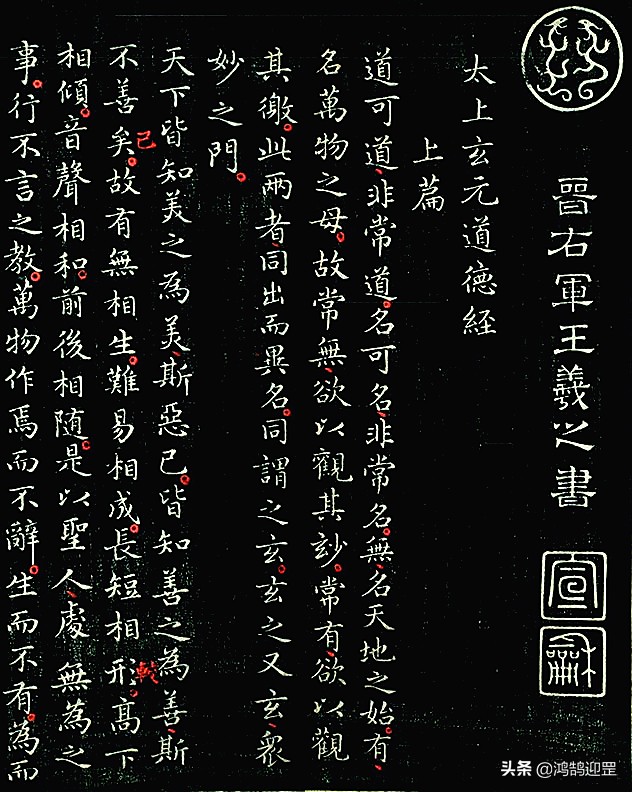 晉右軍王羲之書
宣
龢
太上玄元道德經
上篇
道可道、非常道。名可名、非常名。無、名天地之始。有、
名萬物之母。故常無、欲以觀其玅。常有、欲以觀
其徼。此兩者、同出而異名。同謂之玄。玄之又玄、衆
妙之門。
天下皆知美之為美、斯惡已。皆知善之為善、斯
不善矣。故有無相生。難易相成。長短相形。高下
已
較
相傾。音聲相和。前後相隨。是以聖人、處無為之
事。行不言之教。萬物作焉而不辭。生而不有。為而
头条 @鸿鹄迎罡